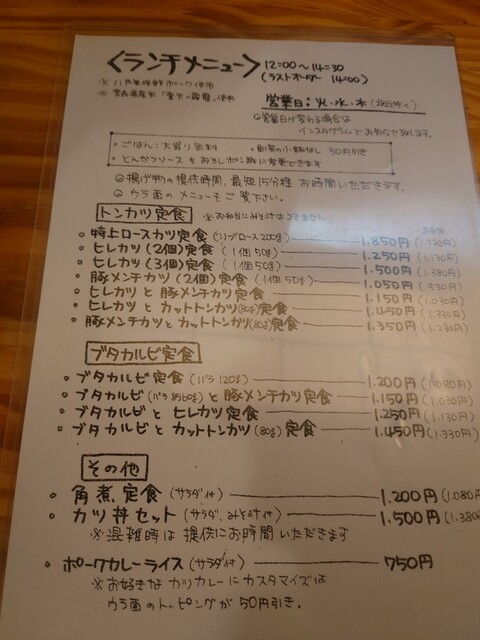 〈ランチメニュー〉 12:00〜14:30
(ラストオーダー 14:00)
営業日:火・水・木
◎営業日が変わる場合は
インスタグラムでお知らせ致します。
・ごはん:大盛り無料 ・副菜の小鉢なし 50円引き
・とんかつソースをおろしポン酢に変更できます
◎揚げ物の提供時間、最短15分程お時間いただきます。
◎ウラ面のメニューもご覧下さい。
トンカツ定食 ※お弁当にみそ汁はつきません
お弁当
・特上ロースカツ定食(リブロース200g) 1.850円(1.720円)
・ヒレカツ(2個)定食(1個50g) 1.250円(1.130円)
・ヒレカツ(3個)定食(1個50g) 1.500円(1.380円)
・豚メンチカツ(2個)定食(1個50g) 1.050円(930円)
・ヒレカツと豚メンチカツ定食 1.150円(1.030円)
・ヒレカツとカットトンカツ(80g)定食 1.450円(1.330円)
・豚メンチカツとカットトンカツ(80g)定食 1.350円(1.230円)
ブタカルビ定食
・ブタカルビ定食(バラ120g) 1.200円(1.080円)
・ブタカルビ(バラ約60g)と豚メンチカツ定食 1.150円(1.030円)
・ブタカルビとヒレカツ定食 1.250円(1.130円)
・ブタカルビとカットトンカツ(80g)定食 1.450円(1.330円)
その他
・角煮定食(サラダ付) 1.200円(1.080円
・カツ丼セット(サラダ、みそ汁付) 1.500円(1.380
※混雑時は提供にお時間いただきます
・ポークカレーライス(サラダ付) 750円
※お好きなカツカレーにカスタマイズは
ウラ面のトッピングが50円引き。